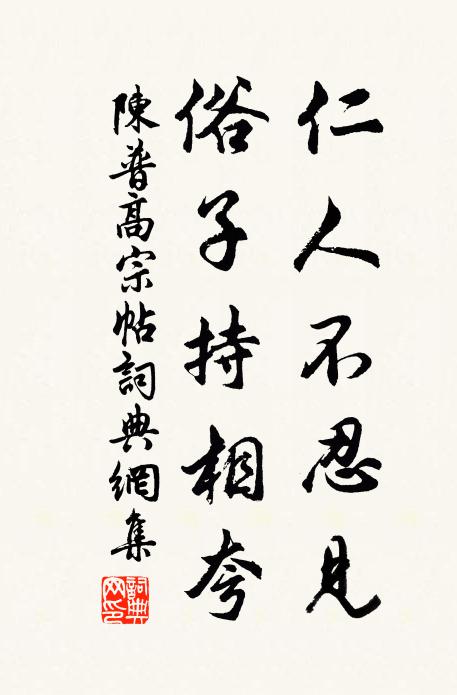 仁人不忍見
俗子持相夸
陳普高宗帖詞典網集
詞典网印